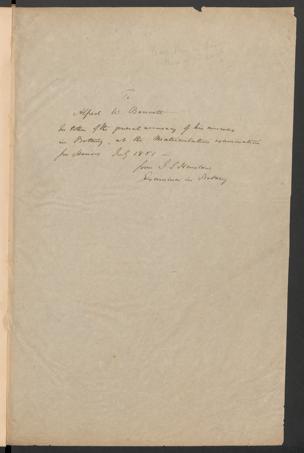 To
Alfred W. Bennett
In token of the general accuracy of his answers
in Botany, at the Matriculation examination
for Honors July 1851 —
from J. S. Henslow
Examiner in Botany